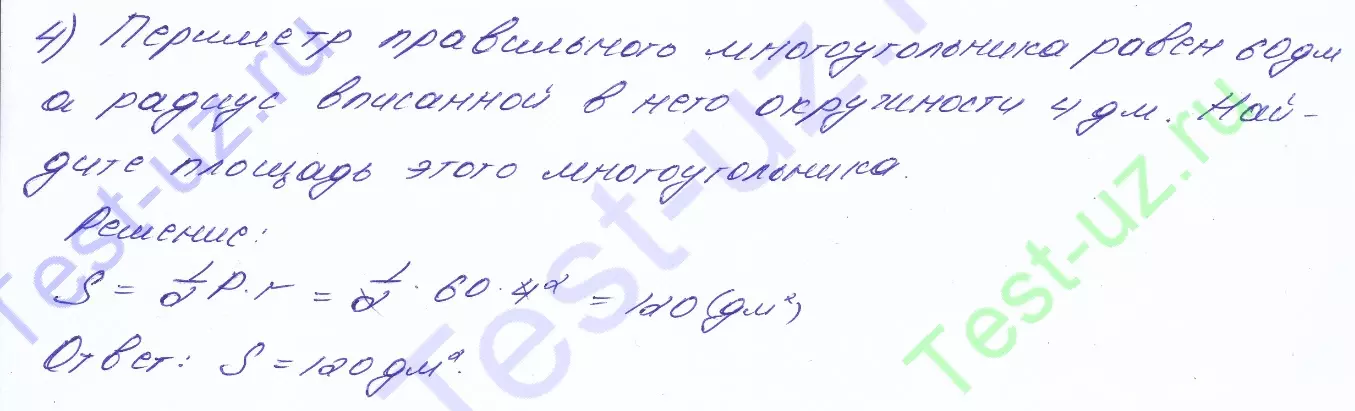 4) Периметр правильного многоугольника равен 60дм
а радиус вписанной в него окружности 4 дм. Най-
дите площадь этого многоугольника.
Решение:
S = 1/2 P·r = 1/2 · 60 · 4² = 120 (дм²)
Ответ: S = 120 дм².
Test-uz.ru
Test-uz.ru
Test-uz.ru